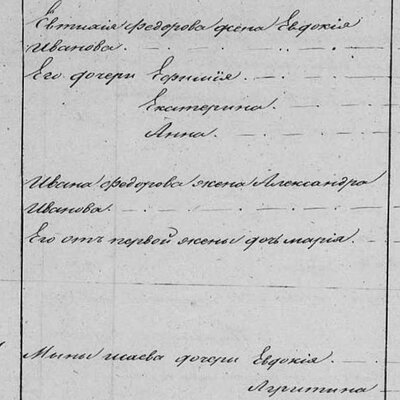 Евтихія Федорова жена Евдокія
Иванова.
Его дочери Ефимія.
Екатерина.
Анна.
Ивана Федорова жена Александра
Иванова.
Его отъ первой жены дочь марія.
Мины Исаева дочери Евдокія
Агрипина